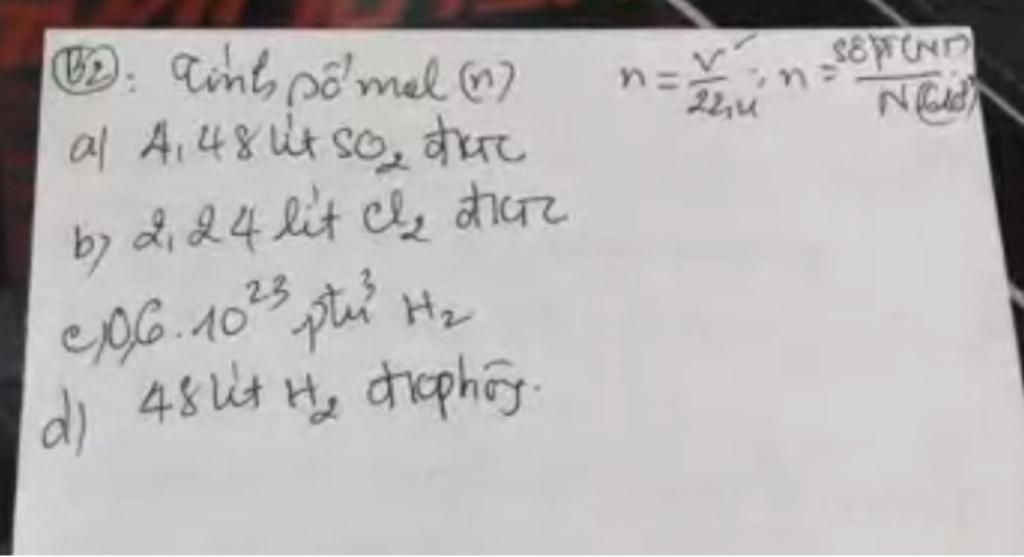 B2: Tính số mol (n) n = V/22,4 ; n = số pt (NT)/N
a) 4,48 lít SO₂ đktc
b) 2,24 lít Cl₂ đktc
c) 0,6.10²³ ptử H₂
d) 48 lít H₂ đkphòng.